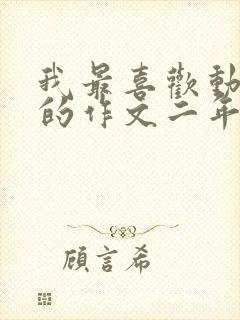 我最喜歡動
的作文二年
顧言希